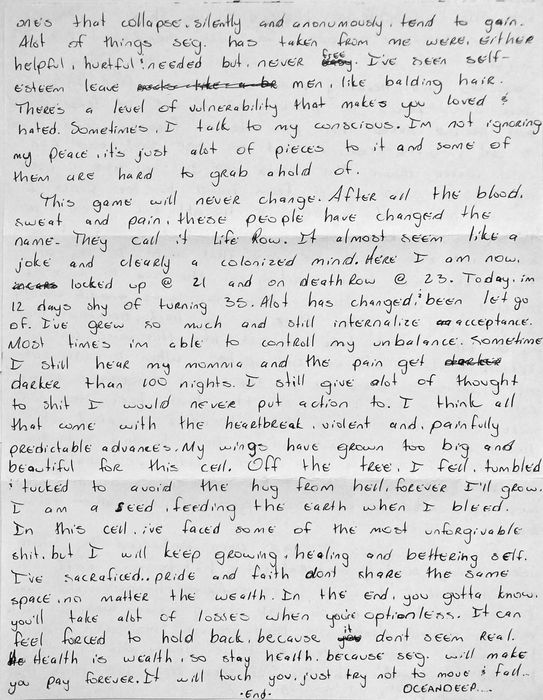 one's that collapse, silently and anonumously, tend to gain.
Alot of things seg. has taken from me were, either
helpful, hurtful & needed but, never free. I've seen self-
esteem leave men, like balding hair.
There's a level of vulnerability that makes you loved &
hated. Sometimes, I talk to my conscious. I'm not ignoring
my peace, it's just alot of pieces to it and some of
them are hard to grab ahold of.
This game will never change. After all the blood,
sweat and pain, these people have changed the
name. They call it Life Row. It almost seem like a
joke and clearly a colonized mind. Here I am now,
locked up @ 21 and on death Row @ 23. Today, im
12 days shy of turning 35. Alot has changed & been let go
of. I've grew so much and still internalize acceptance.
Most times im able to controll my unbalance. Sometime
I still hear my momma and the pain get
darker than 100 nights. I still give alot of thought
to shit I would never put action to. I think all
that come with the heartbreak, violent and, painfully
predictable advances. My wings have grown too big and
beautiful for this cell. Off the tree, I fell, tumbled
& tucked to avoid the hug from hell, forever I'll grow.
I am a seed, feeding the earth when I bleed.
In this cell, ive faced some of the most unforgivable
shit, but I will keep growing, healing and bettering self.
I've sacraficed.. pride and faith dont share the same
space, no matter the wealth. In the end, you gotta know,
you'll take alot of losses when you're optionless. It can
feel forced to hold back, because it dont seem real.
Health is wealth, so stay health, because seg. will make
you pay forever. It will touch you, just try not to move & fall..
·End· OCEANDEEP....